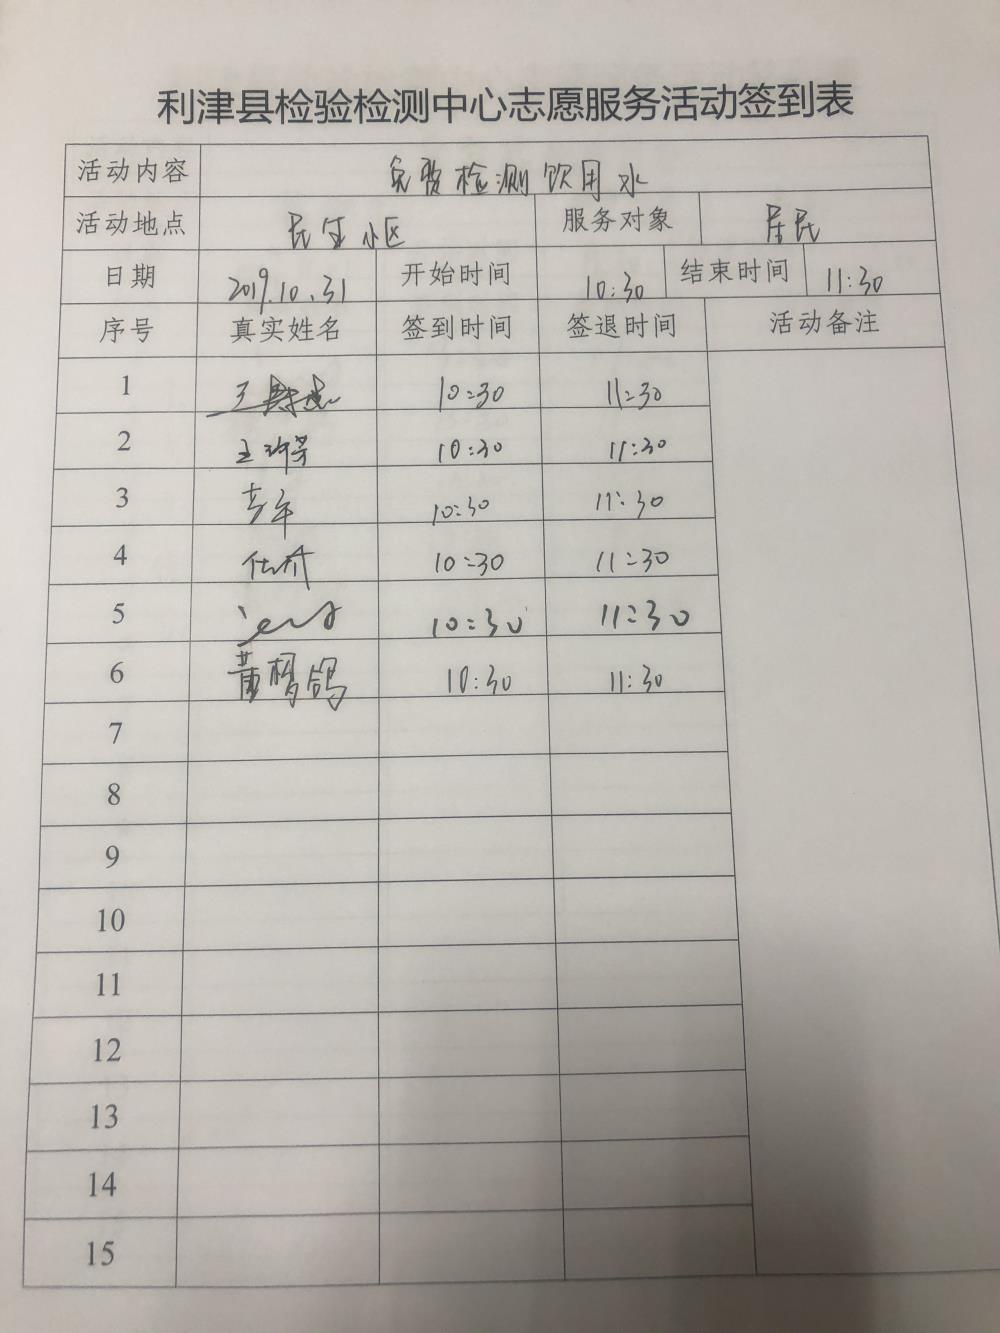 利津县检验检测中心志愿服务活动签到表
活动内容 免费检测饮用水
活动地点 民生小区 服务对象 居民
日期 2019.10.31 开始时间 10:30 结束时间 11:30
序号 真实姓名 签到时间 签退时间 活动备注
1 10:30 11:30
2 10:30 11:30
3 10:30 11:30
4 10:30 11:30
5 10:30 11:30
6 10:30 11:30
7
8
9
10
11
12
13
14
15